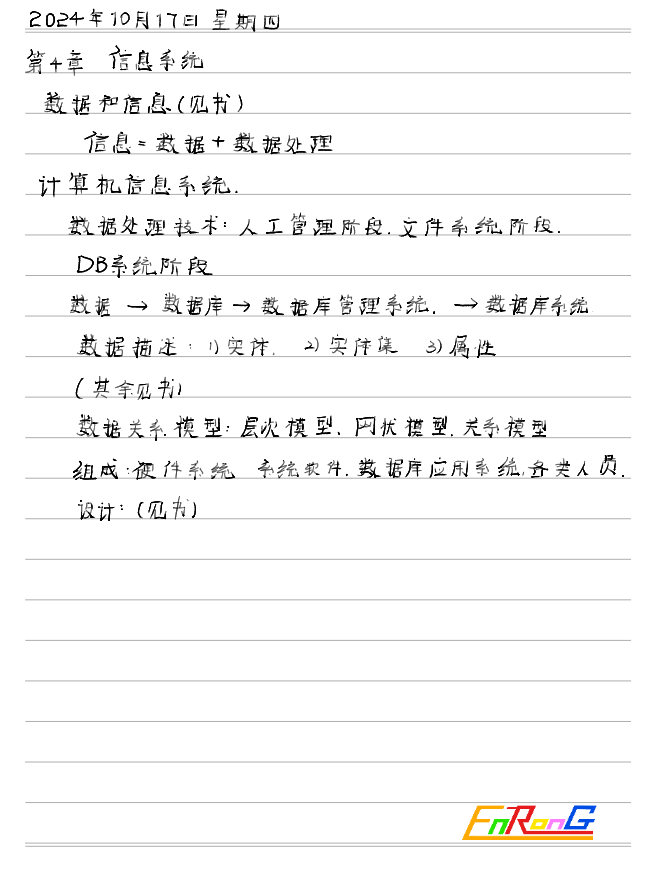 2024年10月17日 星期四
第4章 信息系统
数据和信息(见书)
信息=数据+数据处理
计算机信息系统.
数据处理技术:人工管理阶段.文件系统阶段.
DB系统阶段
数据 → 数据库 → 数据库管理系统. → 数据库系统
数据描述:1)实体. 2)实体集 3)属性
(其余见书)
数据关系.模型:层次模型、网状模型.关系模型
组成:硬件系统 系统软件.数据库应用系统.各类人员.
设计:(见书)
EnRonG